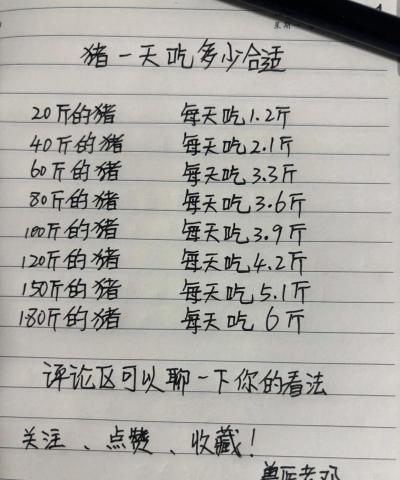 猪一天吃多少合适
20斤的猪 每天吃1.2斤
40斤的猪 每天吃2.1斤
60斤的猪 每天吃3.3斤
80斤的猪 每天吃3.6斤
100斤的猪 每天吃3.9斤
120斤的猪 每天吃4.2斤
150斤的猪 每天吃5.1斤
180斤的猪 每天吃6斤
评论区可以聊一下你的看法
关注、点赞、收藏!
兽医老邓